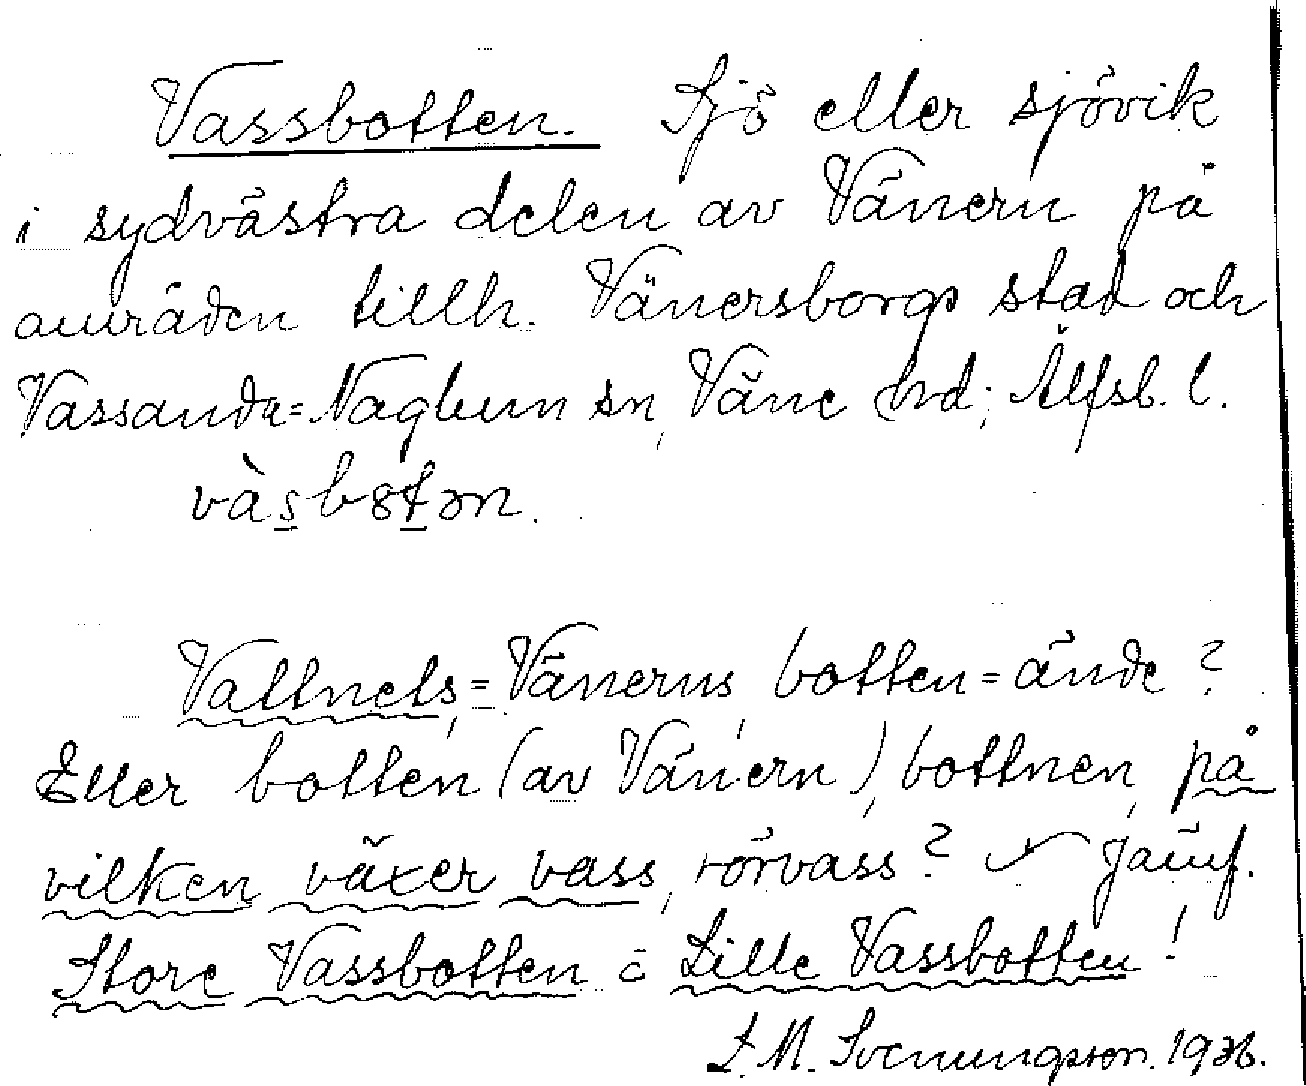 Vassbotten. Sjö eller sjövik
i sydvästra delen av Vänern på
områden tillh. Vänersborgs stad och
Vassanda=Naglum sn, Väne hd; Älfsb. l.
vàsbotən.
Vattnets,=Vänerns, botten=ände?
Eller botten (av Vänern), bottnen, på
vilken växer vass, rörvass? Jämf.
Store Vassbotten = Lille Vassbotten!
L. M. Svenungsson. 1936.